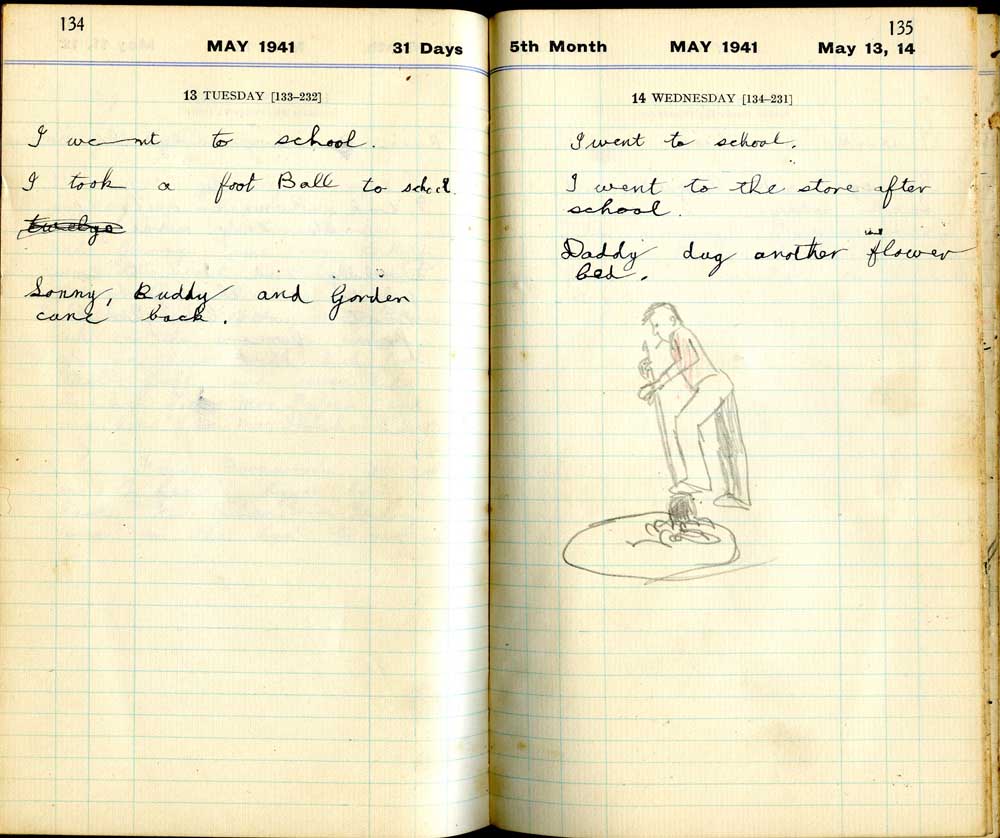 134
MAY 1941 31 Days
13 TUESDAY [133–232]
I went to school.
I took a foot Ball to school.
Sonny, Buddy and Gorden
cane back.
135
5th Month MAY 1941 May 13, 14
14 WEDNESDAY [134–231]
I went to school.
I went to the store after
school.
Daddy dug another flower
bed.